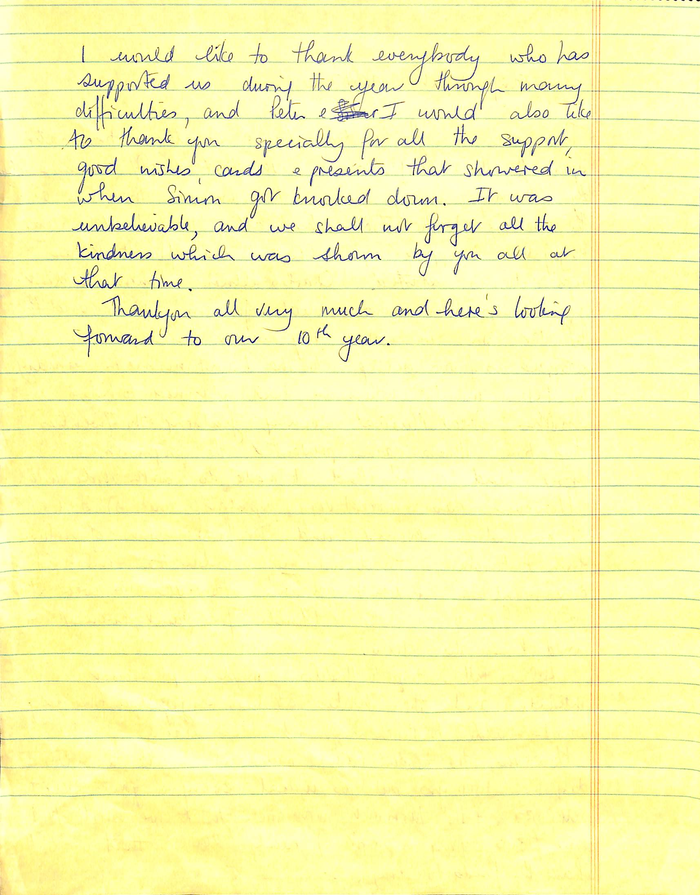 I would like to thank everybody who has
supported us during the year through many
difficulties, and Peter e I would also like
to thank you specially for all the support,
good wishes, cards e presents that showered in
when Simon got knocked down. It was
unbelievable, and we shall not forget all the
kindness which was shown by you all at
that time.
Thankyou all very much and here's looking
forward to our 10th year.